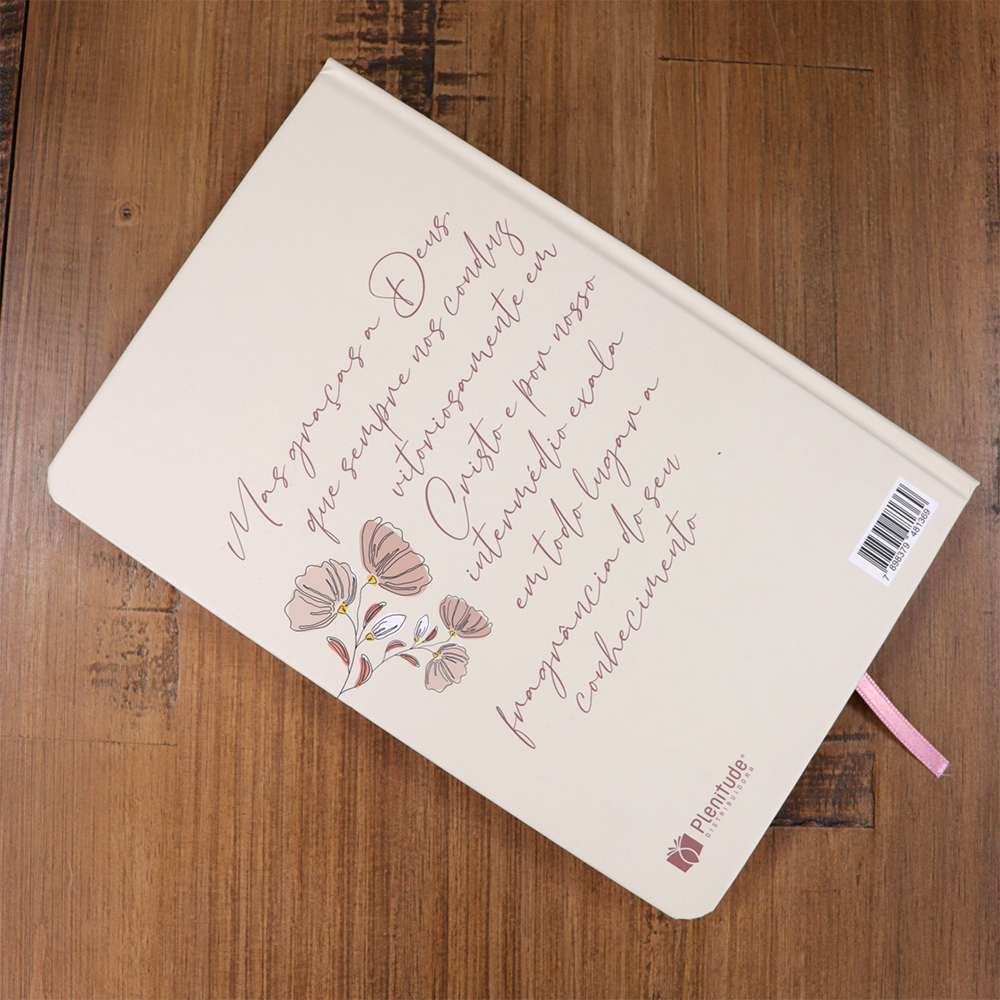 Mas graças a Deus,
que sempre nos conduz
vitoriosamente em
Cristo e por nosso
intermédio exala
em todo lugar a
fragrância do seu
conhecimento
7 898379 481369
Plenitude®
DISTRIBUIDORA